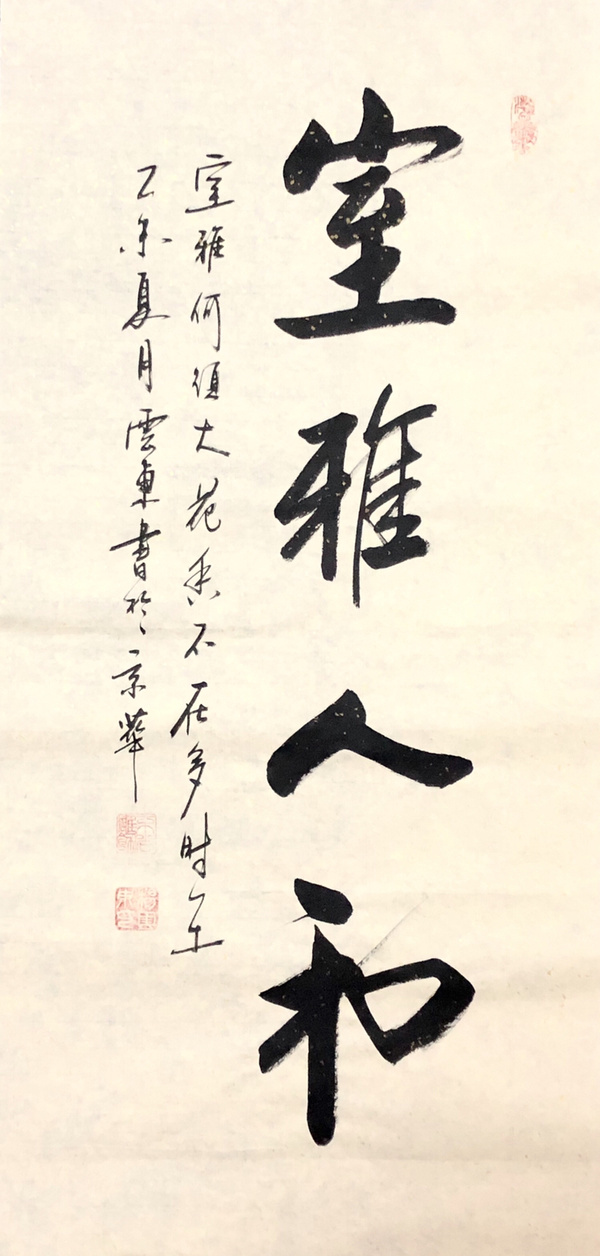 室雅人和
室雅何須大花香不在多时在
乙未夏月雲東書於京華